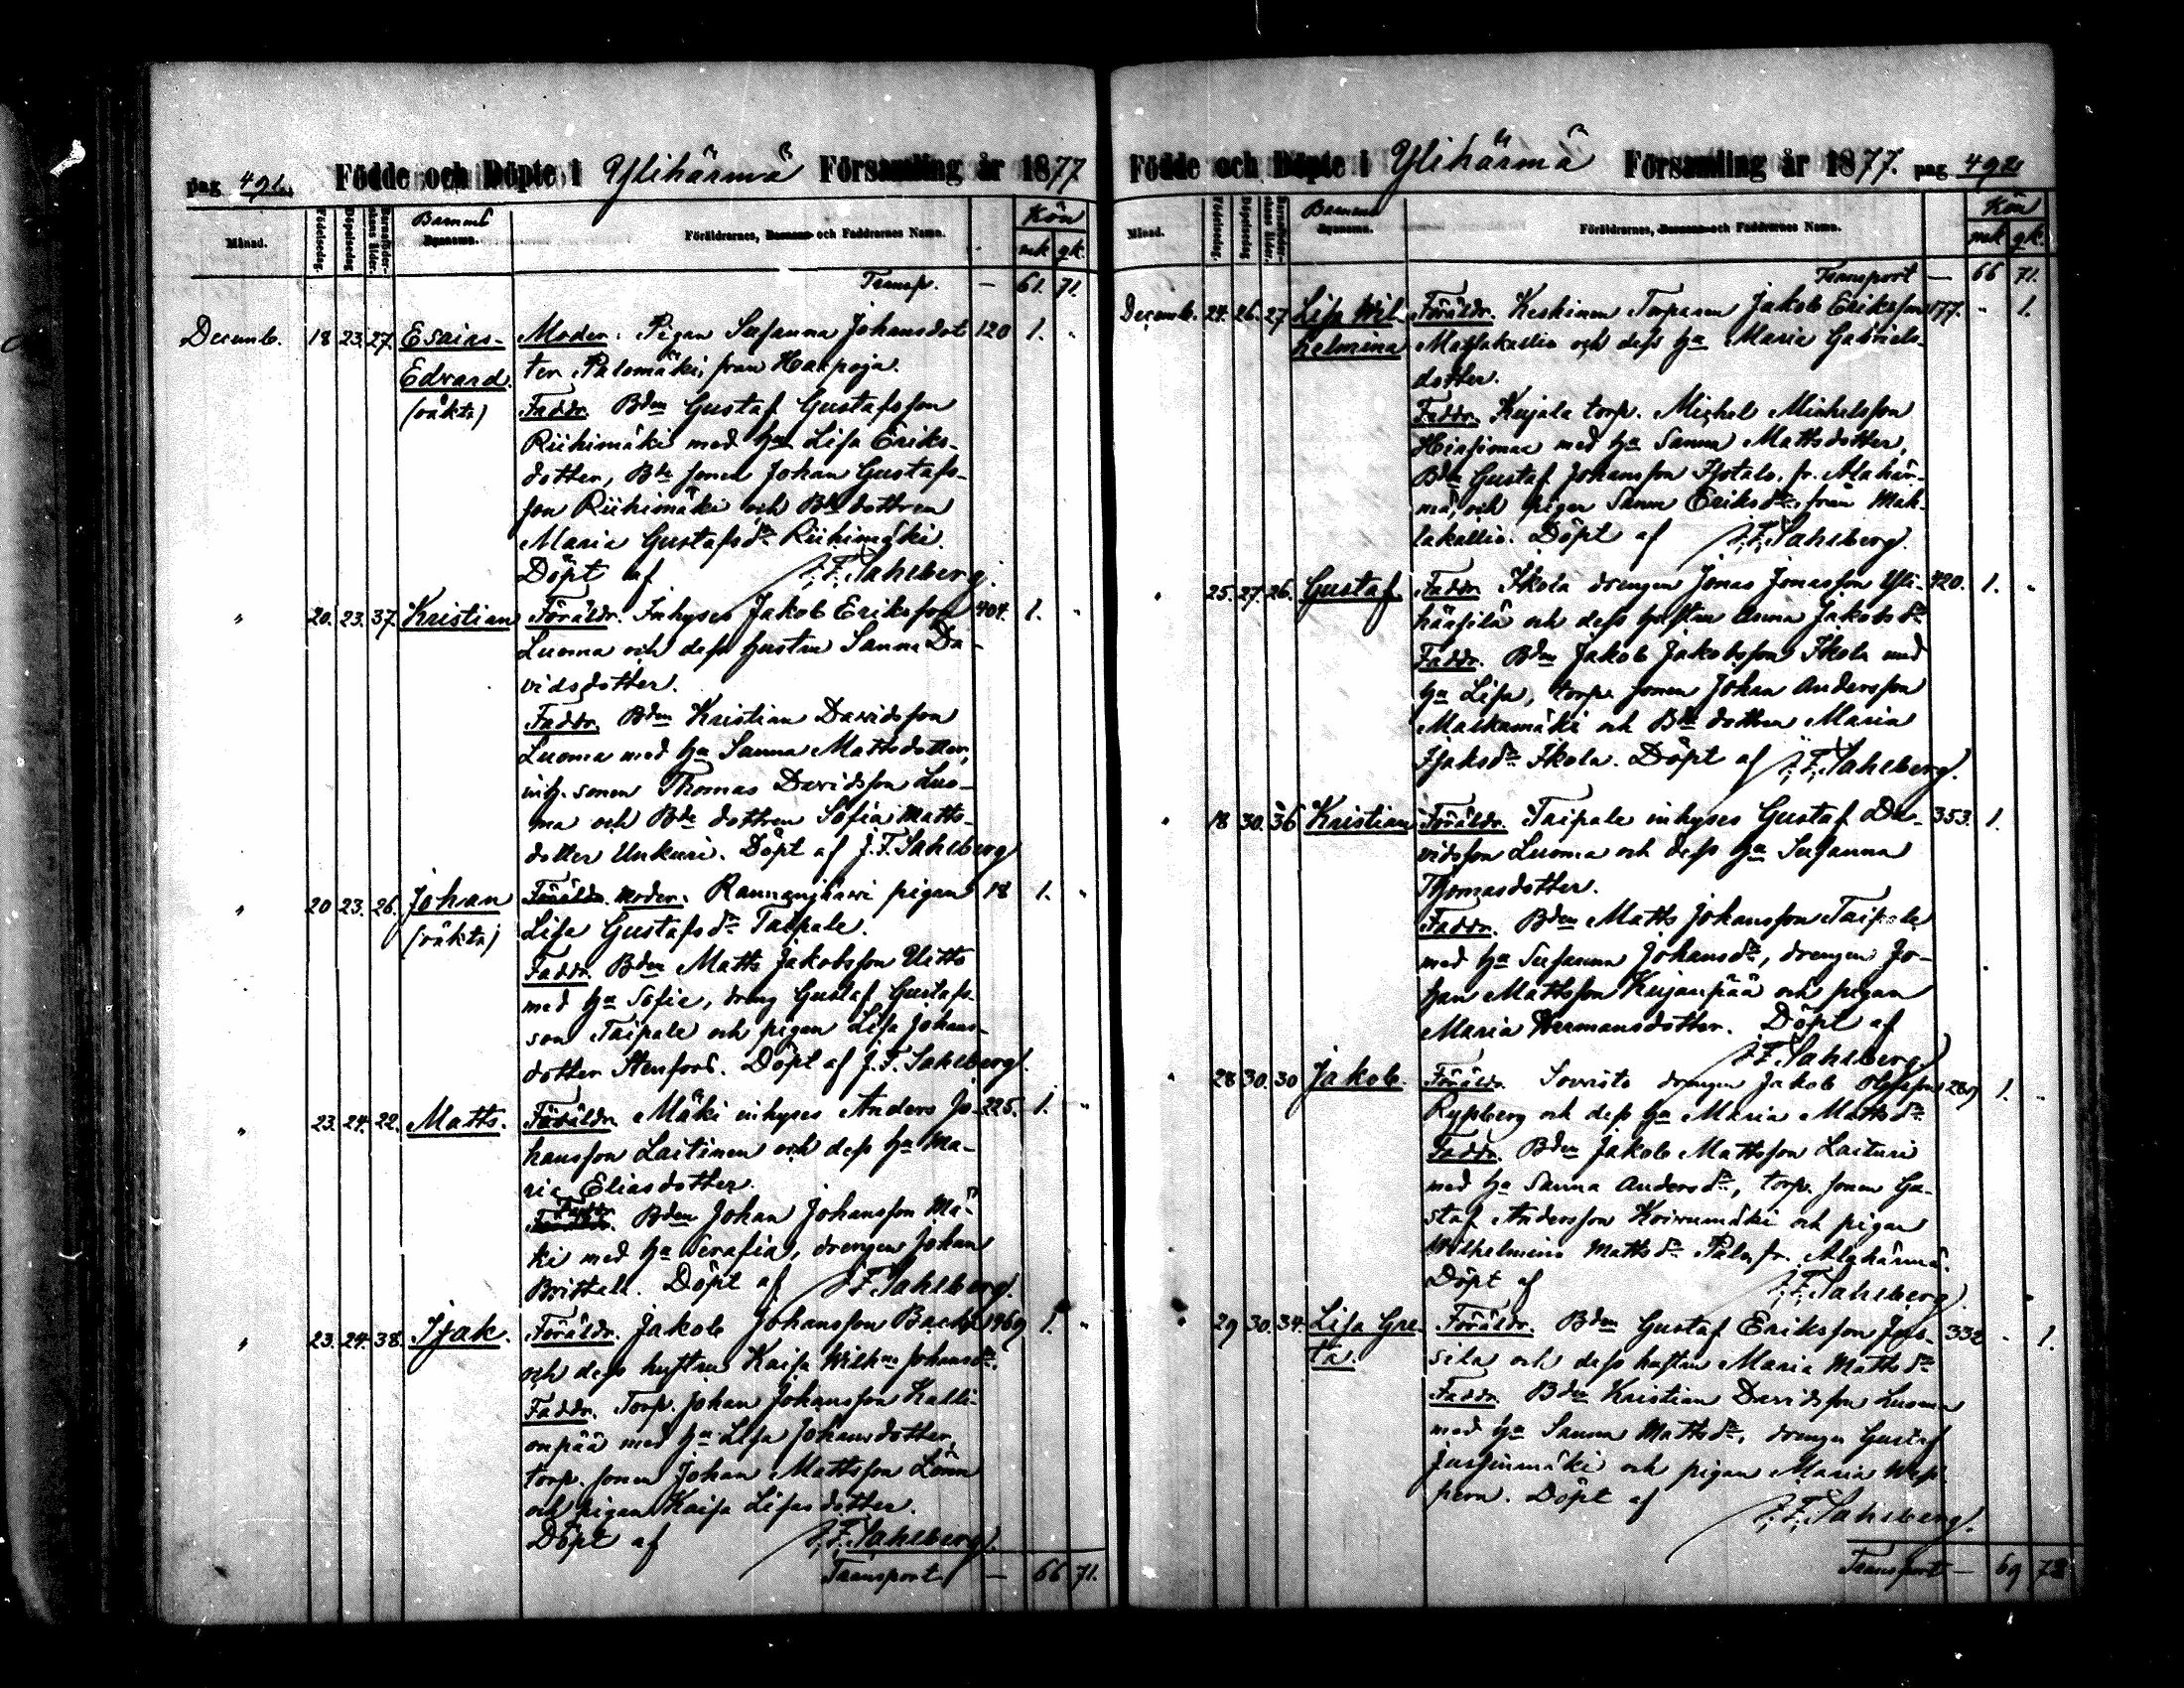 pag 492. Födde och Döpte i Ylihärmä Församling år 1877
Månad. Födelsedag. Döpelsedag. Barnaföderskans ålder. Barnens Byanamn. Föräldrarnes, Barnens och Faddrarnes Namn. Kön mk qk.
Transp. — 61. 71.
Decemb. 18 23. 27. Esaias- Moder. Pigan Susanna Johansdot 120 1. "
Edvard. ter Palomäki, från Haapoja.
(oäkta) Faddr. Bden Gustaf Gustafsson
Riihimäki med hu Lisa Eriks-
dotter, Bde sonen Johan Gustafs-
son Riihimäki och Bde dottren
Maria Gustafsdr Riihimäki.
Döpt af J.F. Sahlberg.
" 20. 23. 37. Kristian Föräldr. Inhyses Jakob Eriksson 404. 1. "
Luoma och dess hustru Sanna Da-
vidsdotter.
Faddr. Bden Kristian Davidsson
Luoma med hu Sanna Mattsdotter,
inh. sonen Thomas Davidsson Luo-
ma och Bde dottren Sofia Matts-
dotter Unkuri. Döpt af J.F. Sahlberg
" 20 23. 26. Johan Föräldr. Moder. Rannanjärvi pigan 18 1. "
(oäkta) Lisa Gustafsdr Taipale.
Faddr. Bden Matts Jakobsson Uitto
med hu Sofia, dreng Gustaf Gustafs-
son Taipale och pigan Lisa Johans-
dotter Stenfors. Döpt af J.F. Sahlberg.
" 23. 24. 22. Matts. Föräldr. Mäki inhyses Anders Jo- 225. 1. "
hansson Laitinen och dess hu Ma-
ria Eliasdotter.
Faddr. Bden Johan Johansson Mä-
ki med hu Serafia, drengen Johan
Brittell. Döpt af J.F. Sahlberg.
" 23. 24. 38. Isak. Föräldr. Jakob Johansson Back 1. "
och dess hustru Kaisa Wilhna Johansdr.
Faddr. Torp. Johan Johansson Kalli-
onpää med hu Lisa Johansdotter,
torp. sonen Johan Mattsson Lönn
och pigan Kaisa Lisasdotter.
Döpt af J.F. Sahlberg.
Transport — 66 71.
Födde och Döpte i Ylihärmä Församling år 1877. pag 492
Månad. Födelsedag. Döpelsedag. Barnaföderskans ålder. Barnens Byanamn. Föräldrarnes, Barnens och Faddrarnes Namn. Kön mk qk.
Transport — 66 71.
Decemb. 24. 26. 27 Lisa Wil- Föräldr. Keskinen Torparen Jakob Eriksson 177. " 1.
helmina Mahlakallio och dess hu Maria Gabriels-
dotter.
Faddr. Kujala torp. Michel Michelsson
med hu Sanna Mattsdotter,
Bde Gustaf Johansson Isotalo, fr. Alahär-
mä, och pigan Sanna Eriksdr. från Mah-
lakallio. Döpt af J.F. Sahlberg.
" 25. 27. 26. Gustaf Faddr. Ikola drengen Jonas Jonasson Yli- 420. 1. "
härsilä och dess hustru Anna Jakobsdr
Faddr. Bden Jakob Jakobsson Ikola med
hu Lisa, torp. sonen Johan Andersson
Malkamäki och Bde dottren Maria
Isaksdr Ikola. Döpt af J.F. Sahlberg.
" 18 30. 36 Kristian Föräldr. Taipale inhyses Gustaf Da- 353. 1.
vidsson Luoma och dess hu Susanna
Thomasdotter.
Faddr. Bden Matts Johansson Taipale
med hu Susanna Johansdr, drengen Jo-
han Mattsson Kujanpää och pigan
Maria Hermansdotter. Döpt af
J.F. Sahlberg
" 28 30. 30 Jakob. Föräldr. Sorvisto drengen Jakob 1. "
Rypberg och dess hu Maria Mattsdr
Faddr. Bden Jakob Mattsson Laituri
med hu Sanna Andersdr, torp. sonen Gu-
staf Andersson Koivumäki och pigan
Wilhelmina Mattsdr Palo fr. Alahärmä.
Döpt af J.F. Sahlberg.
" 29 30. 34. Lisa Gre- Föräldr. Bden Gustaf Eriksson Jus- 332 " 1.
ta. sila och dess hustru Maria Mattsdr
Faddr. Bden Kristian Davidsson Luoma
med hu Sanna Mattsdr, drengen Gustaf
Jussinmäki och pigan Maria
Döpt af J.F. Sahlberg.
Transport — 69 73